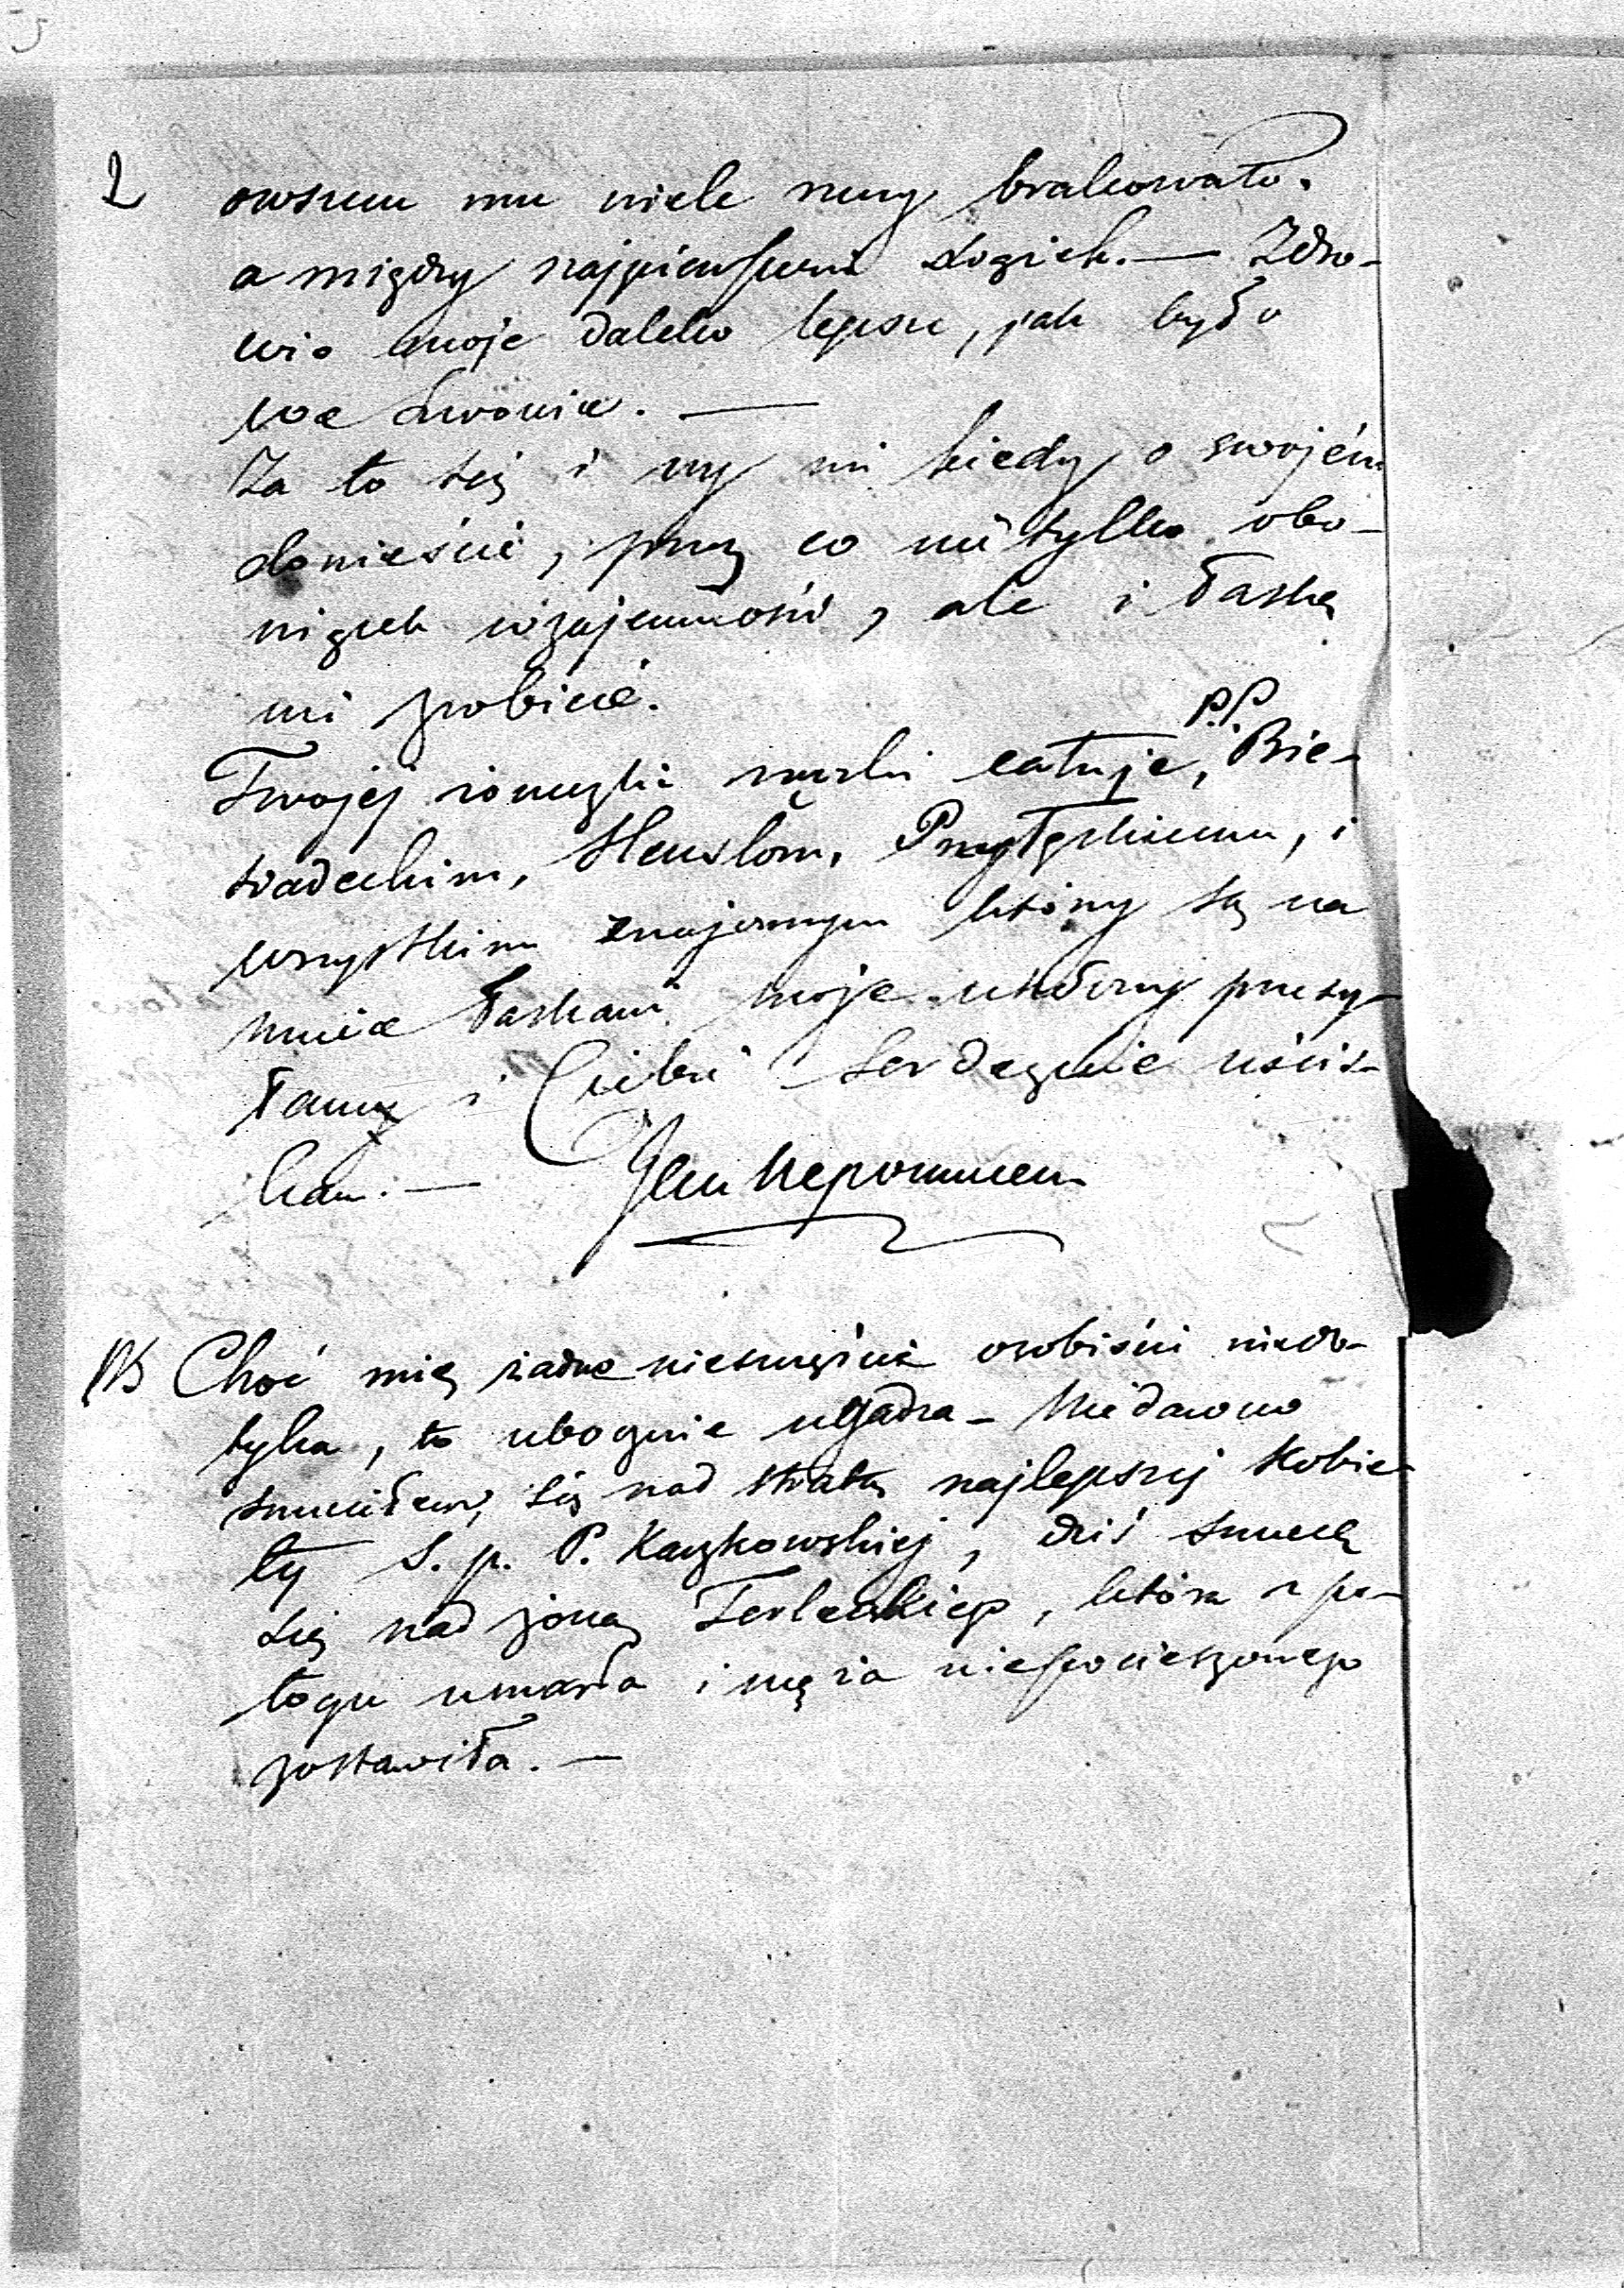 2
owszem mu wiele rzeczy brakowało.
a między najpierwszemi Logick. — Zdro-
wie moje daleko lepsze, jak było
we Lwowie. —
Za to też i wy mi kiedy o swojém
donieście, przez co nie tylko obo-
wiązek wzajemności, ale i łaskę
mi zrobicie.
Twojej żoneczki rączki całuje, P.P. Bie-
siadeckim, Henslom, Przyłęckiemu, i
wszystkim znajomym którzy są na
mnie łaskawi moje ukłony przesy-
łamy i Ciebie serdecznie uścis-
kam. — Jan Nepomucen
NB Choć mię żadne nieszczęście osobiście niedo-
tyka, to ubocznie ugadza — Niedawno
smuciłem się nad stratą najlepszej kobie-
ty S. p. P. Kaczkowskiej, dziś smucę
się nad żoną Terleckiego, która z po-
łogu umarła i męża niepocieszonego
zostawiła. —